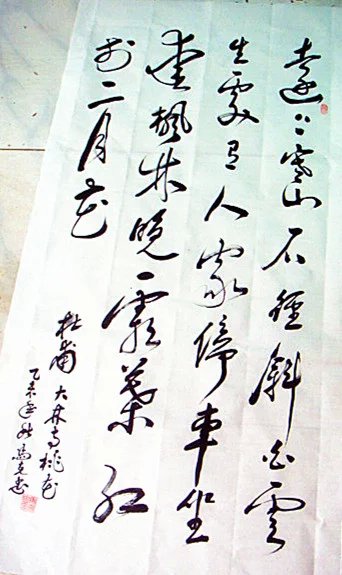 遠上寒山石徑斜白雲
生處有人家停車坐
愛楓林晚霜葉红
於二月花
杜甫 大林寺桃花
乙未年